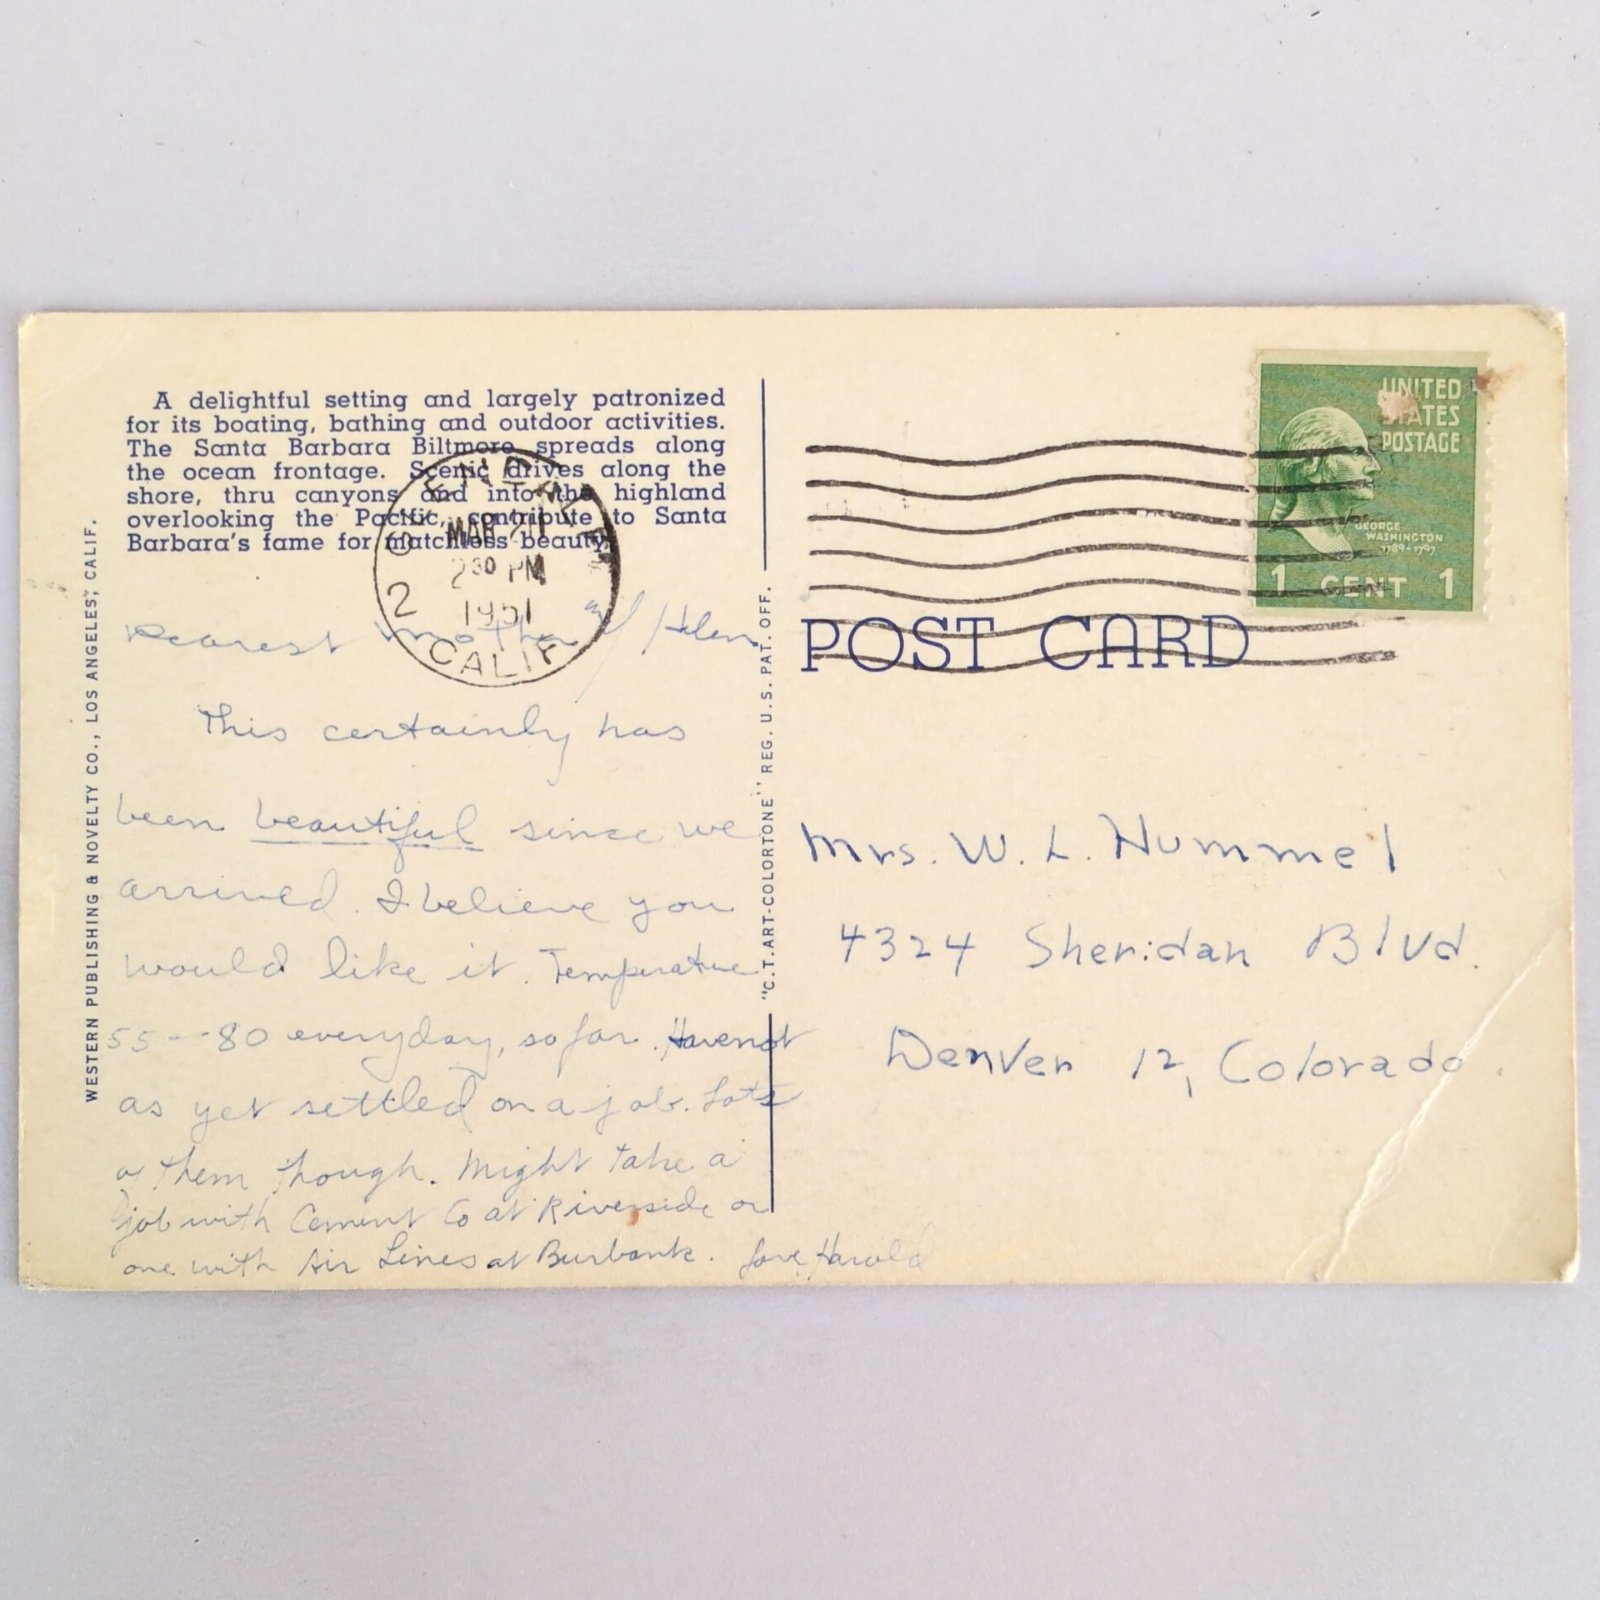 A delightful setting and largely patronized
for its boating, bathing and outdoor activities.
The Santa Barbara Biltmore spreads along
the ocean frontage. Scenic drives along the
shore, thru canyons and into the highland
overlooking the Pacific, contribute to Santa
Barbara's fame for matchless beauty.
MAR 21
2 30 PM
1951
2
CALIF
Dearest Mother & Helen
This certainly has
been beautiful since we
arrived. I believe you
would like it. Temperature
55--80 everyday, so far. Have not
as yet settled on a job. Lots
o them though. Might take a
job with Cement Co at Riverside or
one with Air Lines at Burbank. Love, Harold
WESTERN PUBLISHING & NOVELTY CO., LOS ANGELES, CALIF.
"C.T. ART-COLORTONE" REG. U.S. PAT. OFF.
UNITED
STATES
POSTAGE
GEORGE
WASHINGTON
1789-1797
1 CENT 1
POST CARD
Mrs. W. L. Hummel
4324 Sheridan Blvd.
Denver 12, Colorado.